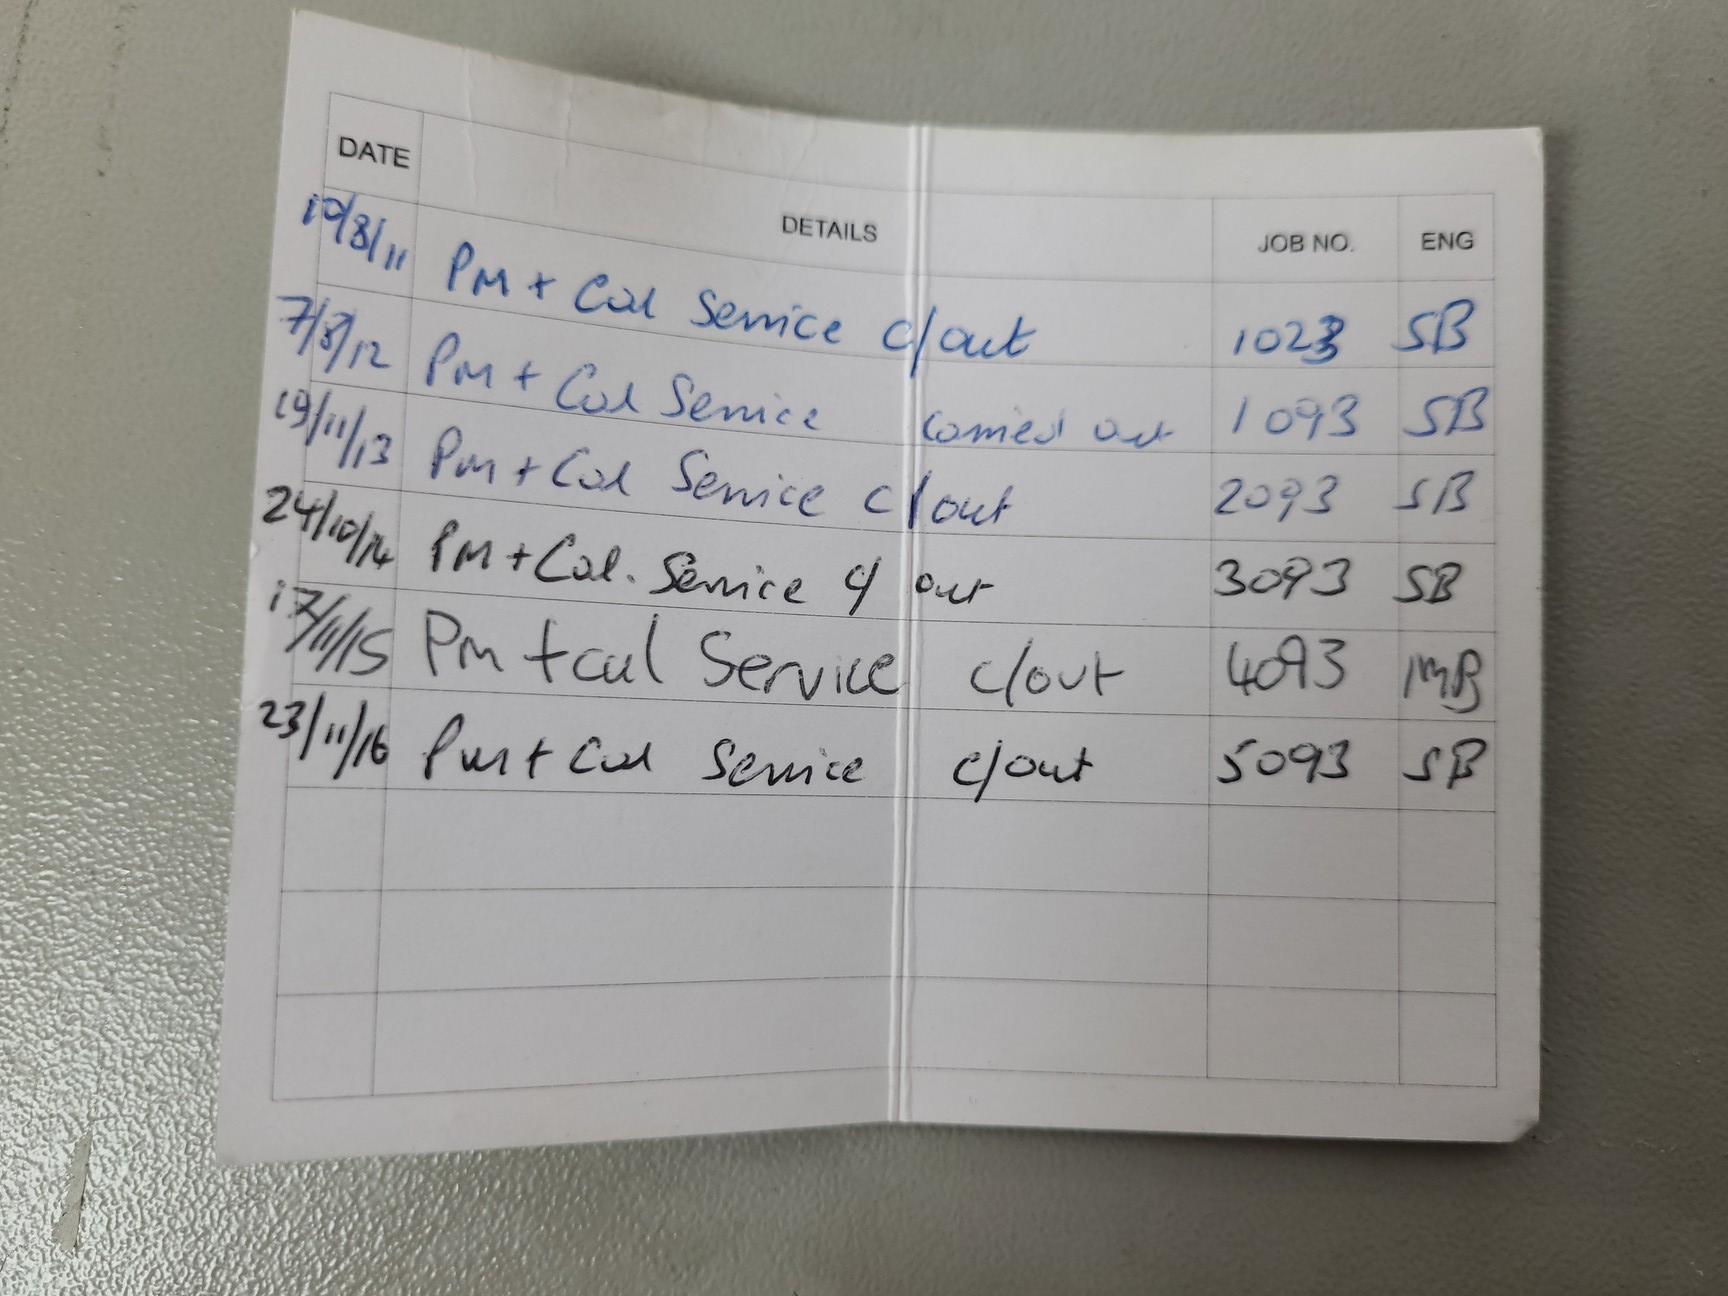 DATE DETAILS JOB NO. ENG
19/8/11 PM + Cal Service c/out 1023 SB
7/8/12 PM + Cal Service carried out 1093 SB
19/11/13 PM + Cal Service c/out 2093 SB
24/10/14 PM + Cal. Service c/out 3093 SB
17/11/15 Pm + cal Service c/out 4093 MB
23/11/16 PM + Cal Service c/out 5093 SB